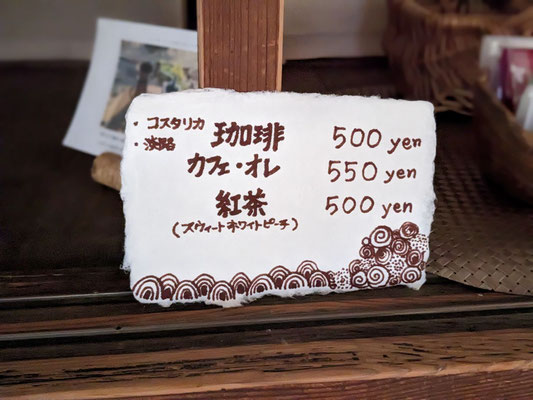 ・コスタリカ
・淡路
珈琲 500 yen
カフェ・オレ 550 yen
紅茶 500 yen
(スヴィートホワイトピーチ)